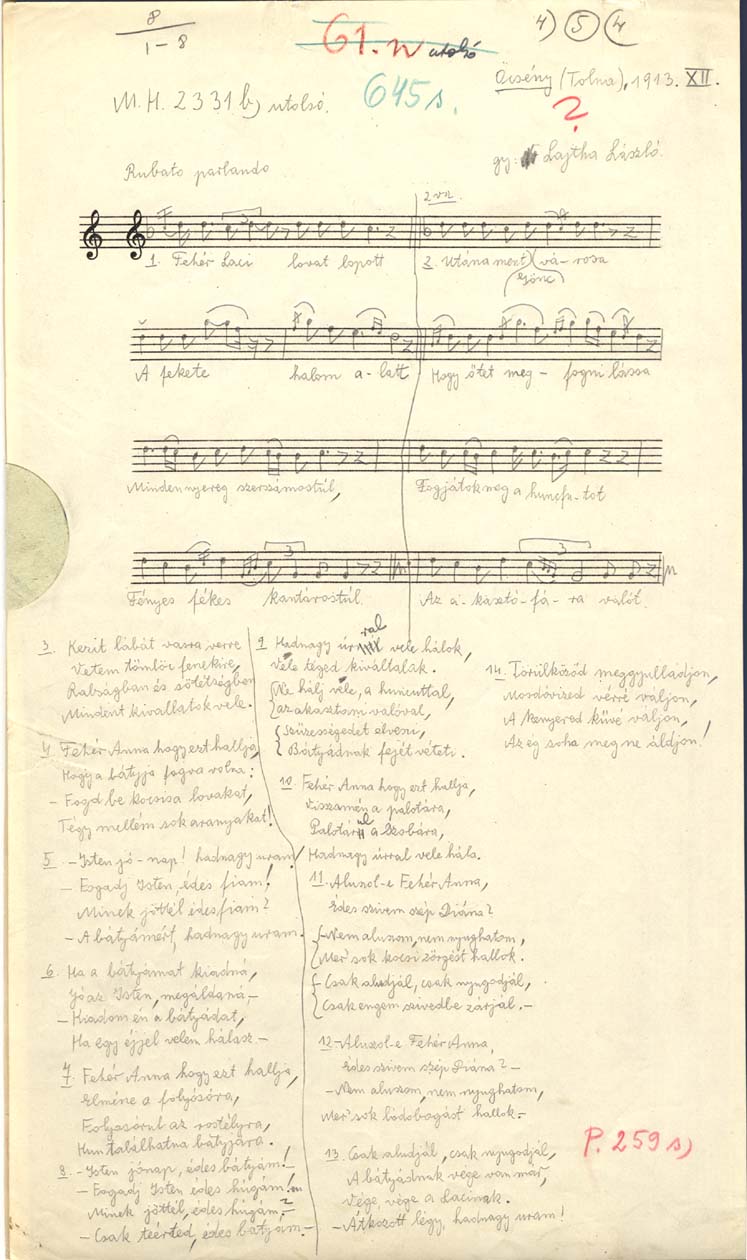 8
1-8
61. n utolsó
4) 5 (4
M. H. 2331 b) utolsó.
645 s.
Őcsény (Tolna), 1913. XII.
?
gy: Lajtha László.
Rubato parlando
2. vsz.
1. Fehér Laci lovat lopott
2. Utána ment vá-rosa
(Gönc)
A fekete halom a-latt
Hogy őtet meg-fogni lássa
Minden nyereg szerszámostúl,
Fogjátok meg a huncfu-tot
3
3
Fényes fékes kantárostúl.
Az a-kasztó-fá-ra valót.
3. Kezit lábát vasra verve
Vetem tömlöc fenekire,
Rabságban és sötétségben
Mindent kivallatok vele.
4. Fehér Anna hogy ezt hallja,
Hogy a bátyja fogva volna:
- Fogd be kocsisa lovakat,
Tégy mellém sok aranyakat!
5. - Isten jó-nap! hadnagy uram!
- Fogadj Isten, édes fiam!
Minek jöttél édes fiam?
- A bátyámért, hadnagy uram.
6. Ha a bátyámat kiadná,
Jó az Isten, megáldaná. -
- Kiadom én a bátyádat,
Ha egy éjjel velem hálasz -
7. Fehér Anna hogy ezt hallja,
Elméne a folyósóra,
Folyosórul az rostélyra,
Hun találhatna bátyjára.
8. - Isten jónap, édes bátyám! -
- Fogadj Isten édes húgám!
Minek jöttél, édes húgám? -
- Csak teérted, édes bátyám. -
9. Hadnagy úrral vele hálok,
Véle téged kiváltalak.
Ne hálj véle, a huncuttal,
az akasztani valóval,
Szüzességedet elveni,
Bátyádnak fejét véteti.
10. Fehér Anna hogy ezt hallja,
Visszamén a palotára,
Palotárul a szobára,
Hadnagy úrral vele hála.
11. Aluszol-e Fehér Anna,
Édes szivem szép Diána?
- Nem aluszom, nem nyughatom,
Mer' sok kocsi zörgést hallok.
- Csak aludjál, csak nyugodjál,
Csak engem szivedbe zárjál. -
12. - Aluszol-e Fehér Anna,
Édes szivem szép Diána? -
- Nem aluszom, nem nyughatom,
Mer' sok lódobogást hallok. -
13. Csak aludjál, csak nyugodjál,
A bátyádnak vége van már,
Vége, vége a Lacinak.
- Átkozott légy, hadnagy uram!
14. Törülköződ meggyulladjon,
Mosdóvized vérré váljon,
A kenyered küvé váljon,
Az ég soha meg ne áldjon!
P. 259 s)